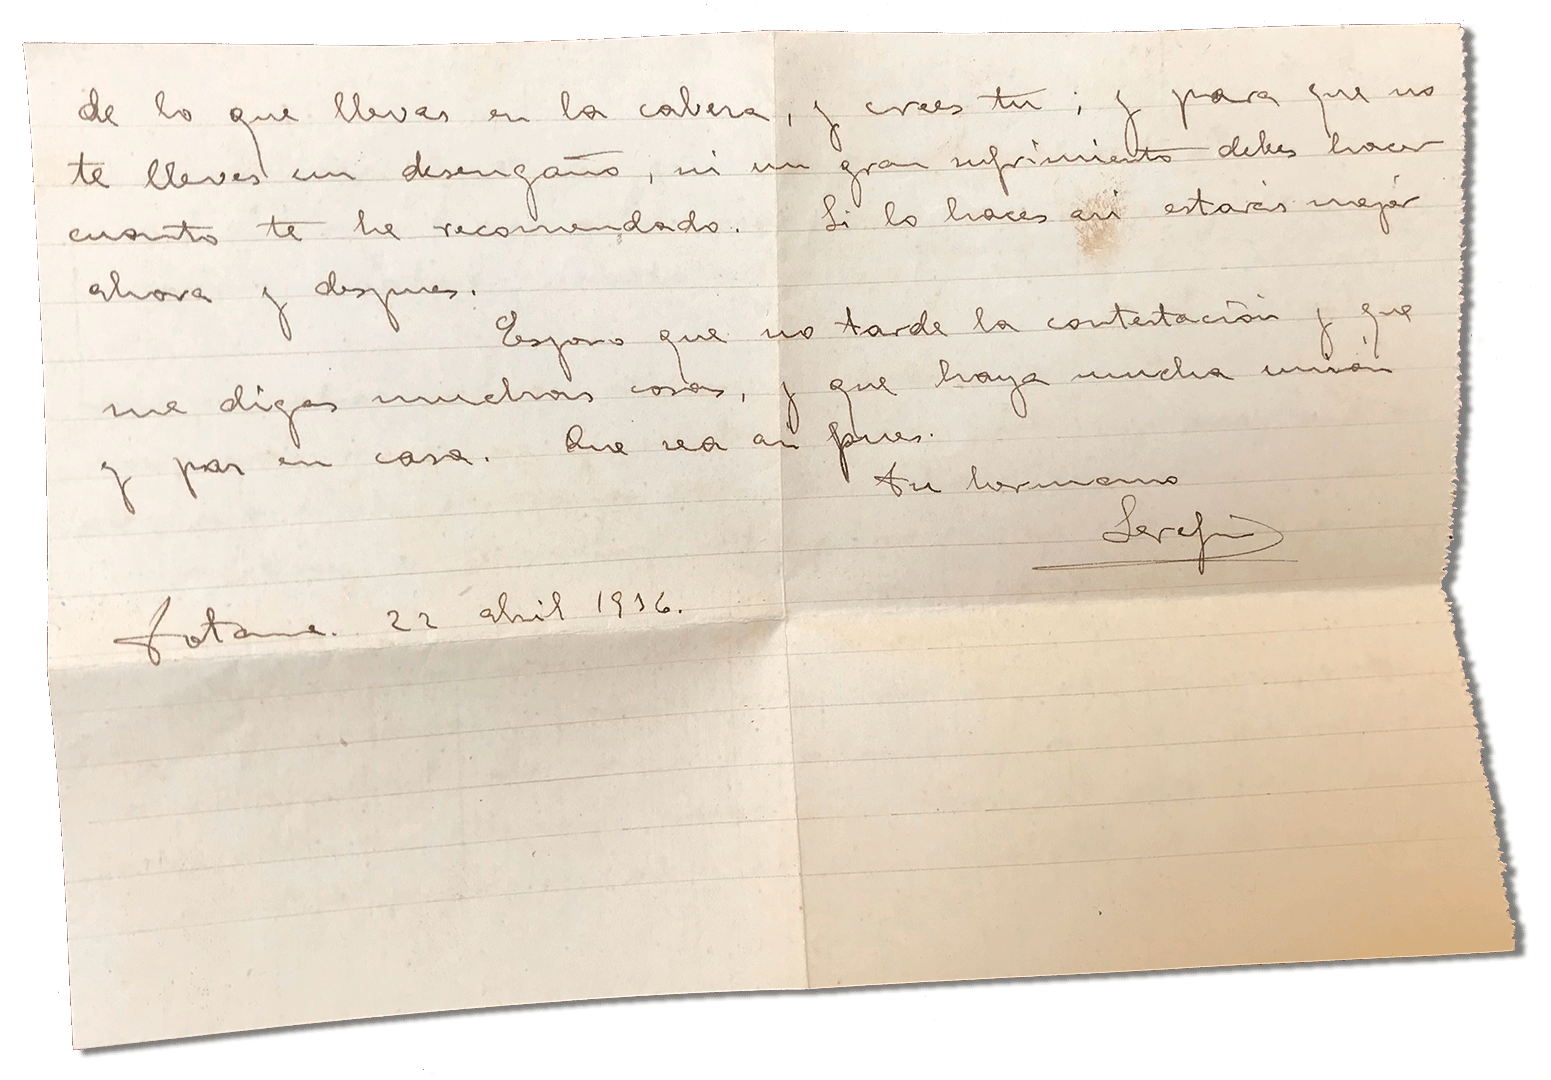 de lo que llevas en la cabeza, y crees tu; y para que no
te lleves un desengaño, ni un gran sufrimiento debes hacer
cuanto te he recomendado. Si lo haces asi estarás mejor
ahora y despues.
Espero que no tarde la contestación y que
me digas muchas cosas, y que haya mucha unión
y paz en casa. Que sea asi pues.
tu hermano
Serafin
Totana. 22 abril 1936.